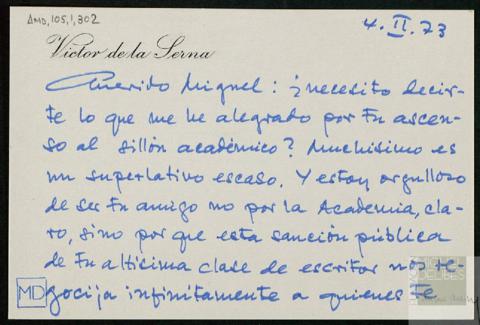 AMD,105,1,302
4.II.73
Victor de la Serna
Querido Miguel: ¿necesito decir-
te lo que me he alegrado por tu ascen-
so al sillón académico? Muchísimo es
un superlativo escaso. Y estoy orgulloso
de ser tu amigo no por la Academia, cla-
ro, sino por que esta sanción pública
de tu altísima clase de escritor nos re-
gocija infinitamente a quienes te
MD